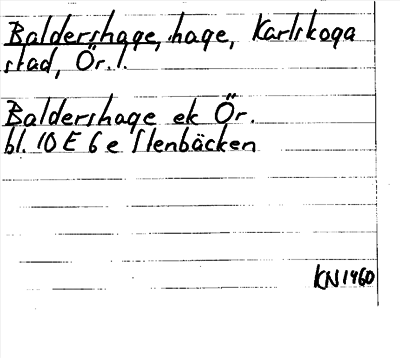 Baldershage, hage, Karlskoga
stad, Ör. l.
Baldershage ek Ör.
bl. 10 E 6 e Stenbäcken
KN 1960